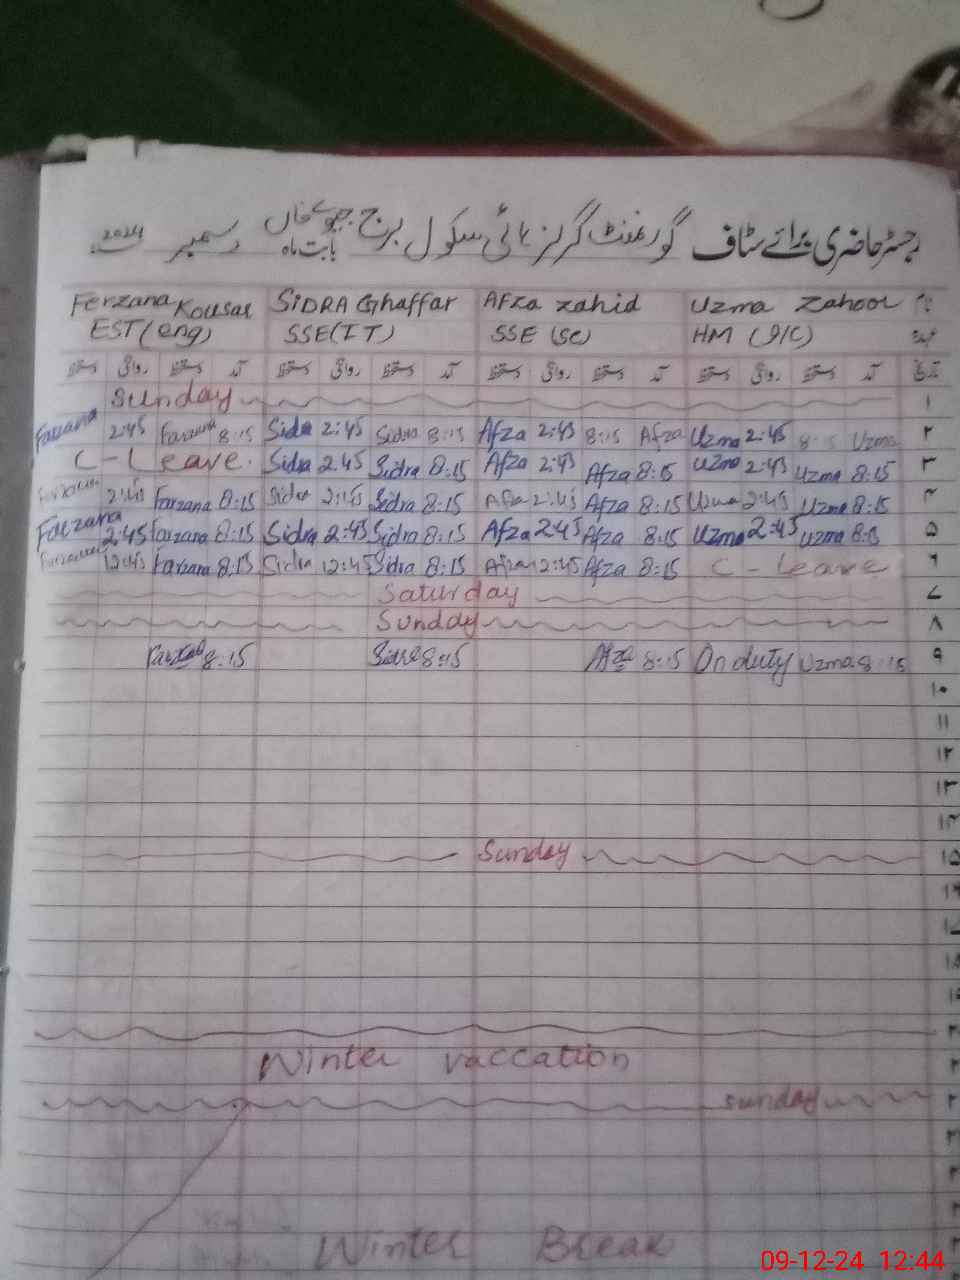 رجسٹر حاضری برائے سٹاف گورنمنٹ گرلز ہائی سکول برج جیوے خاں بابت ماہ دسمبر 2024
Ferzana Kousar SIDRA Ghaffar Afza zahid Uzma Zahoor نام
EST (eng) SSE(IT) SSE (SC) HM (I/C) عہدہ
دستخط روانگی دستخط آمد دستخط روانگی دستخط آمد دستخط روانگی دستخط آمد دستخط روانگی دستخط آمد تاریخ
Sunday ۱
Farzana 2:45 Farzana 8:15 Sidra 2:45 Sidra 8:15 Afza 2:45 8:15 Afza Uzma 2:45 8:15 Uzma ۲
C - Leave. Sidra 2:45 Sidra 8:15 Afza 2:45 Afza 8:15 Uzma 2:45 Uzma 8:15 ۳
Farzana 2:45 Farzana 8:15 Sidra 2:45 Sidra 8:15 Afza 2:45 Afza 8:15 Uzma 2:45 Uzma 8:15 ۴
Farzana 2:45 Farzana 8:15 Sidra 2:45 Sidra 8:15 Afza 2:45 Afza 8:15 Uzma 2:45 Uzma 8:15 ۵
Farzana 12:45 Farzana 8:15 Sidra 12:45 Sidra 8:15 Afza 12:45 Afza 8:15 C - Leave ۶
Saturday ۷
Sunday ۸
Farzana 8:15 Sidra 8:15 Afza 8:15 On duty Uzma 8:15 ۹
۱۰
۱۱
۱۲
۱۳
۱۴
Sunday ۱۵
۱۶
۱۷
۱۸
۱۹
Winter vaccation
Sunday
Winter Break
09-12-24 12:44